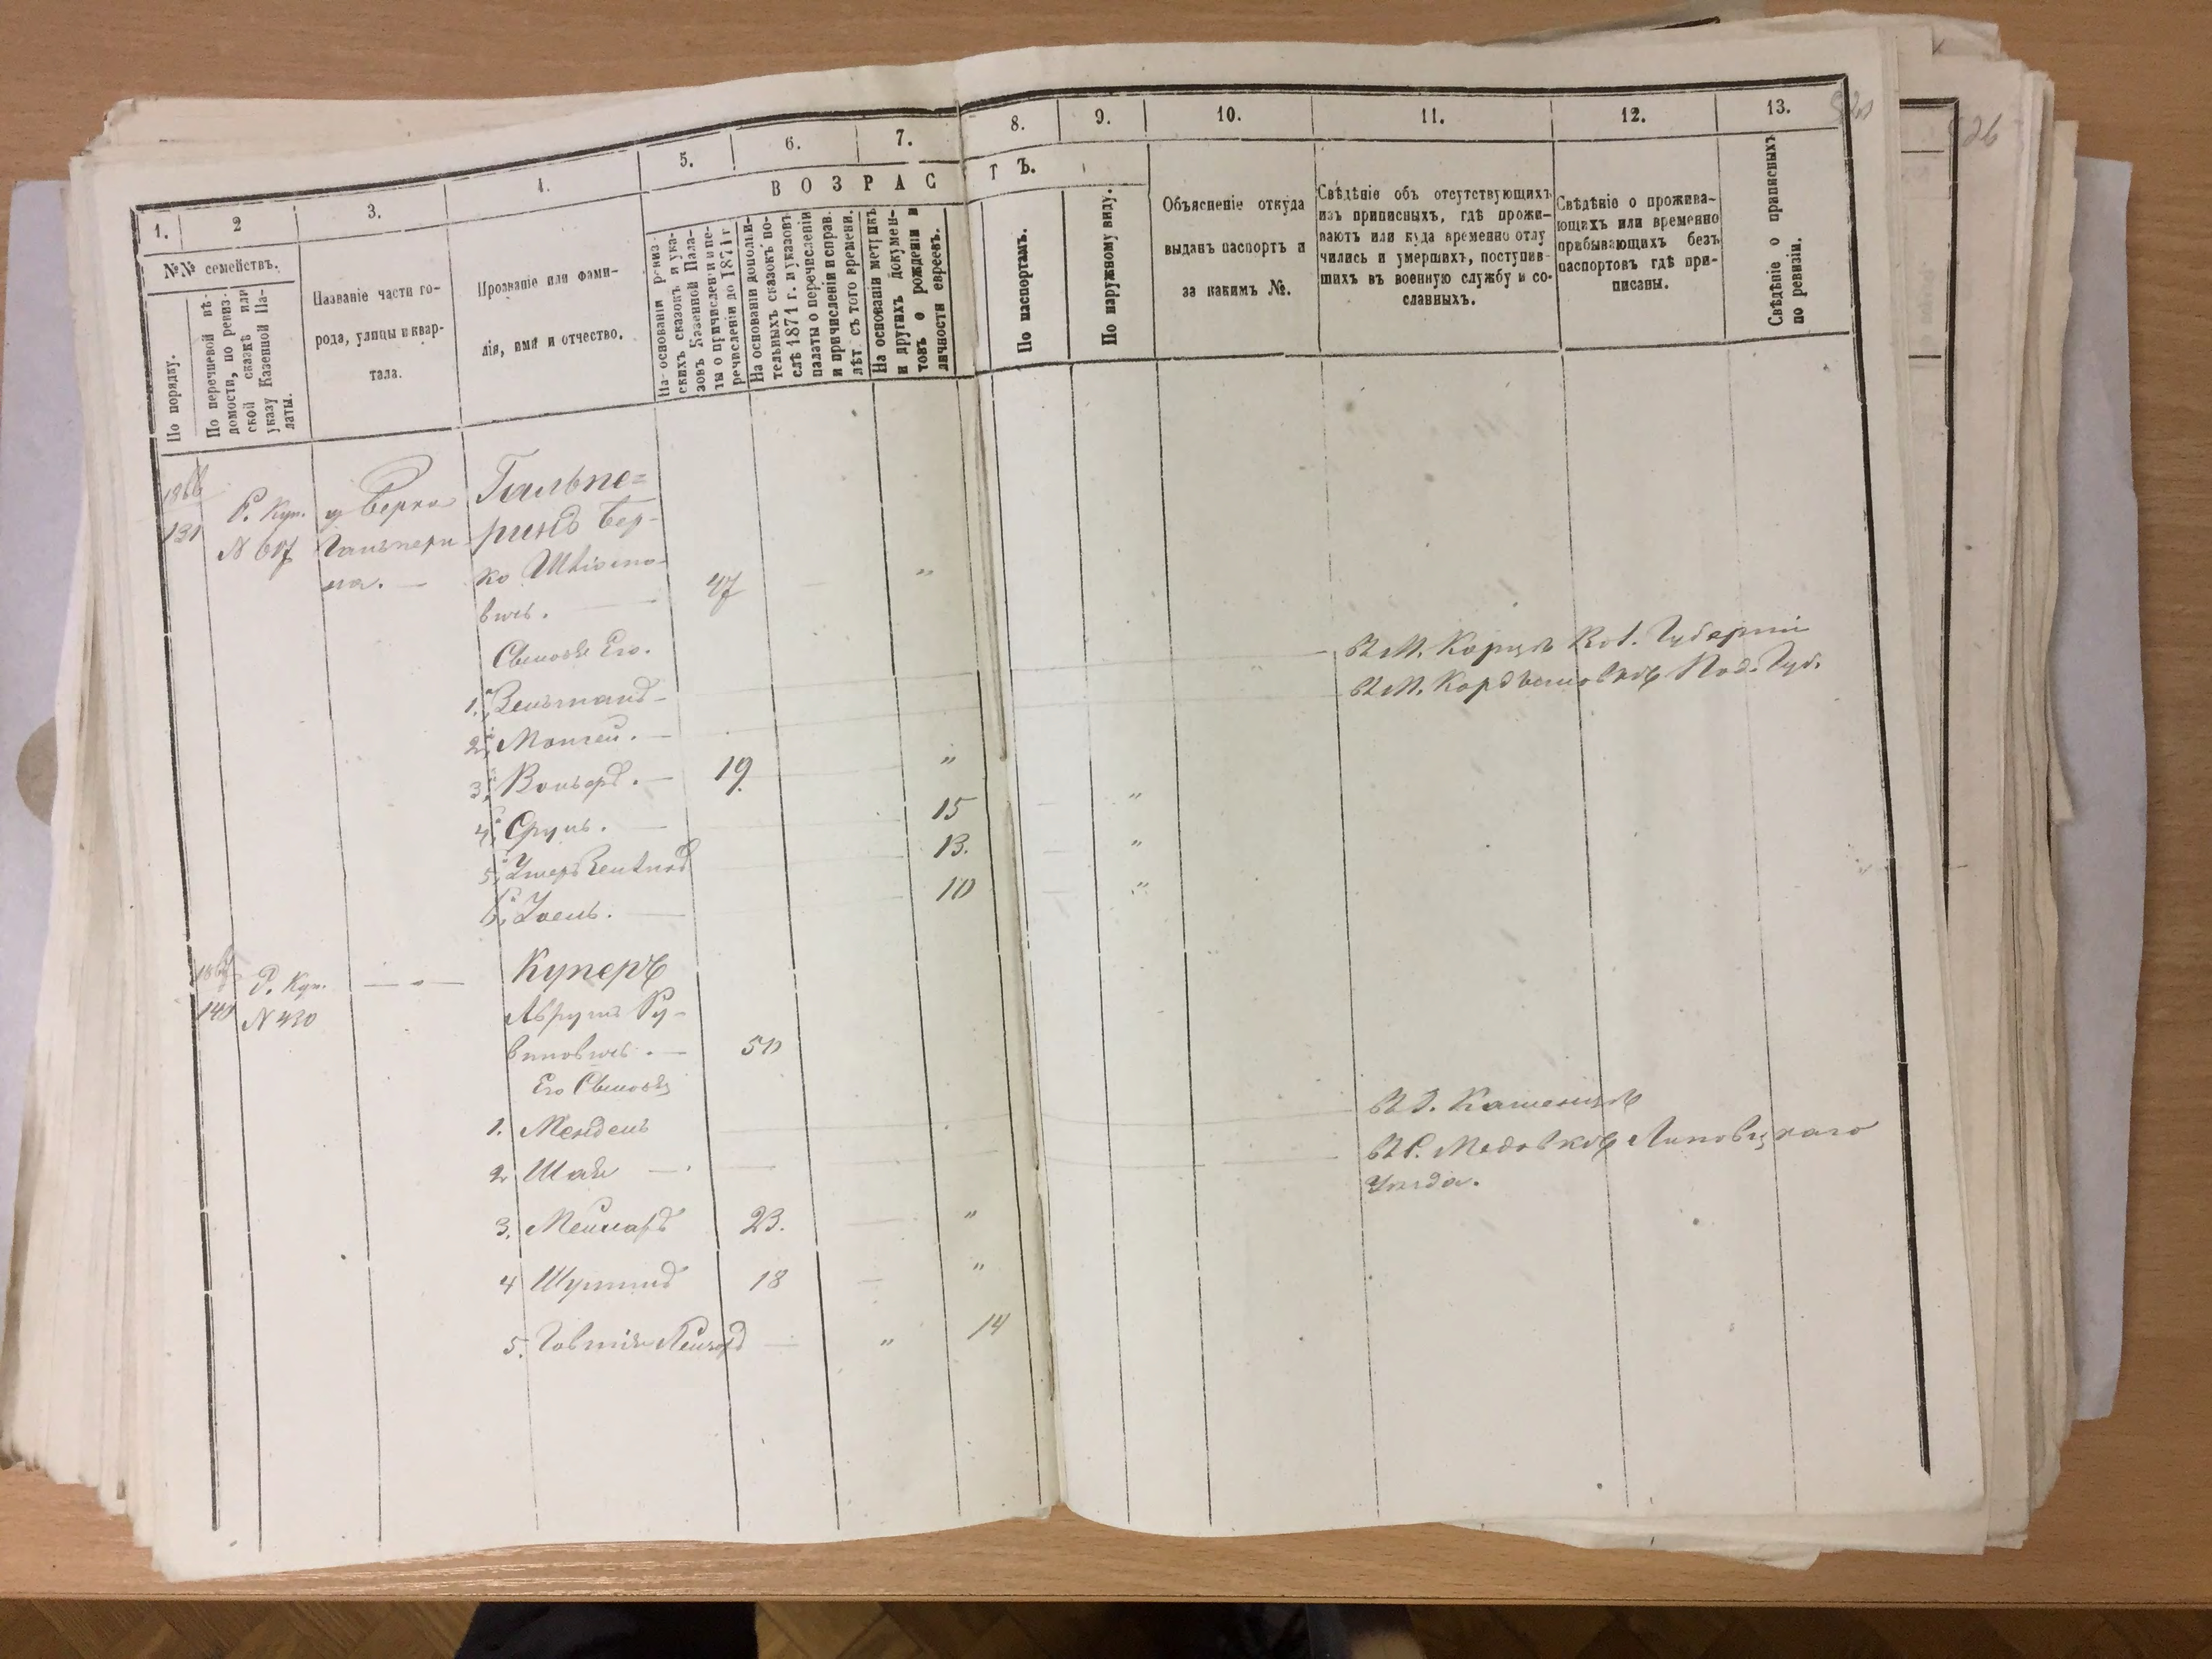 1.
2
3.
4.
5.
6.
7.
8.
9.
10.
11.
12.
13.
В О З Р А С Т Ъ.
№№ семействъ.
По порядку.
По перечневой вѣ-
домости, по ревиз-
ской сказкѣ или
указу Казенной Па-
латы.
Названіе части го-
рода, улицы и квар-
тала.
Прозваніе или фами-
лія, имя и отчество.
На основаніи ревиз-
скихъ сказокъ и ука-
зовъ Казенной Пала-
ты о причисленіи и пе-
речисленіи до 1871 г.
На основаніи дополни-
тельныхъ сказокъ по-
слѣ 1871 г. и указовъ
палаты о перечисленіи
и причисленіи и справ.
лѣт. съ того времени.
На основаніи метрикъ
и другихъ докумен-
товъ о рожденіи и
личности евреевъ.
По паспортамъ.
По наружному виду.
Объясненіе откуда
выданъ паспортъ и
за какимъ №.
Свѣдѣніе объ отсутствующихъ
изъ приписныхъ, гдѣ прожи-
ваютъ или куда временно отлу
чились и умершихъ, поступив-
шихъ въ военную службу и со-
сланныхъ.
Свѣдѣніе о прожива-
ющихъ или временно
прибывающихъ безъ
паспортовъ гдѣ при-
писаны.
Свѣдѣніе о приписныхъ
по ревизіи.
1866
131
Р. Куп.
N 607
у Берка
Гальпери-
на. —
Гальпе=
ринъ Бер-
ко
вичъ. — 47 — "
Сыновья Его.
1.
В М. Корцѣ Губерніи
2. Мошей. —
В М. Под. Губ.
3. Вольфъ. — 19. "
4. Сруль. — 15 "
5. 13. "
6. — 10 "
1867
140
Р. Куп.
N 430
— " —
Куперъ
Аврумъ Ру-
виновичъ. — 50
Его Сыновья
1. Мендель
В Г. Каменцѣ
2. Шая —
В С. Медовкѣ Липовецкаго
Уѣзда.
3. 23. — "
4 18 — "
5. — " 14
526